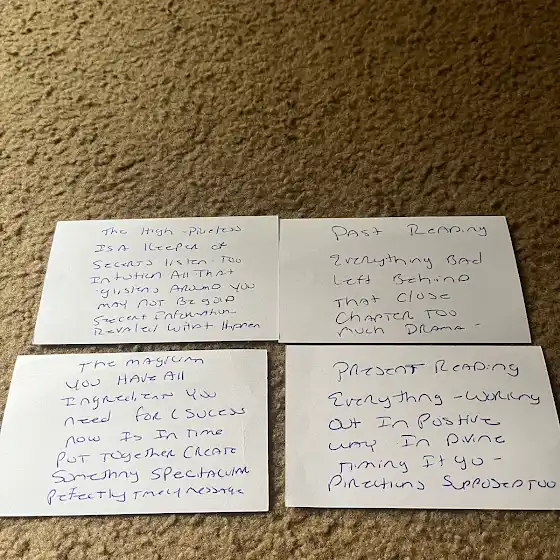 The High-Priestess
Is A Keeper of
Secerts listen Too
Intution All That
glistens Around you
May Not Be gold
Seecret Information
Revaled What Happen
Past Reading
Everything Bad
Left Behind
That Close
Chapter Too
Much Drama-
The Magician
You Have All
Ingredients You
need for Sucess
now Is In Time
Put Together Create
Something Specitacular
Perfectly Timely Message
Present Reading
Everything-Working
Out In Postive
way In Divine
Timing If yo-
Directions Supposed Too